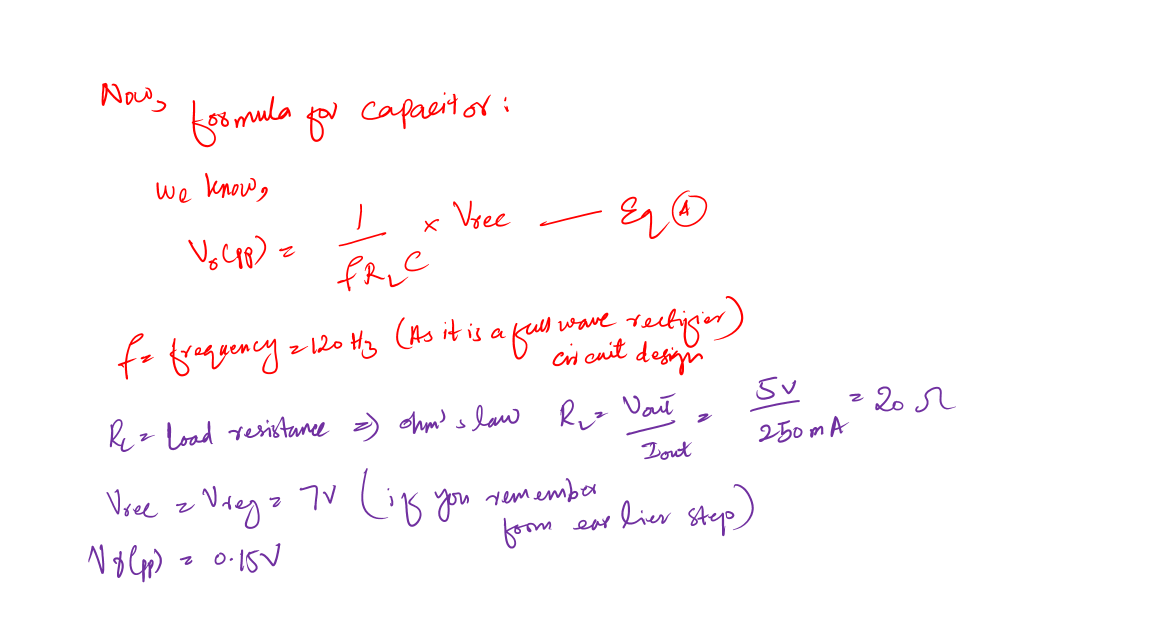 Now,
formula for capacitor:
we know,
Vr(pp) = 1/(fRLC) × Vrec — Eq (A)
f = frequency = 120 Hz (As it is a full wave rectifier
circuit design)
RL = Load resistance => ohm's law RL = Vout/Iout = 5V/250mA = 20 Ω
Vrec = Vreg = 7V (if you remember
from earlier step)
Vr(pp) = 0.15V